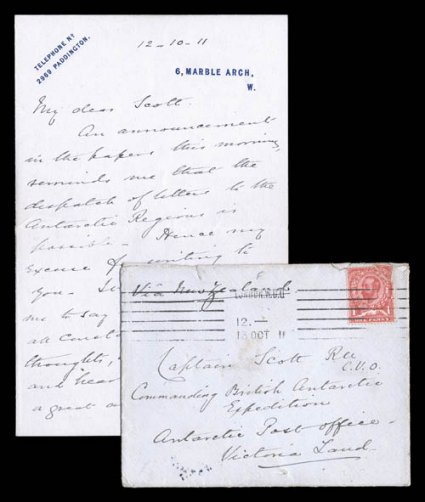 TELEPHONE Nº
2969 PADDINGTON.
12-10-11
6, MARBLE ARCH,
W.
My dear Scott.
An announcement
in the papers this morning,
reminds me that the
despatch of letters to the
Antarctic Regions is
possible - Hence my
excuse for writing to
you -
me to say
all
thoughts,
and hear
a great
Via New Zealand
LONDON. W.
12.
13 OCT 11
ONE PENNY
Captain Scott R.N.
C.V.O.
Commanding British Antarctic
Expedition
Antarctic Post Office -
Victoria Land